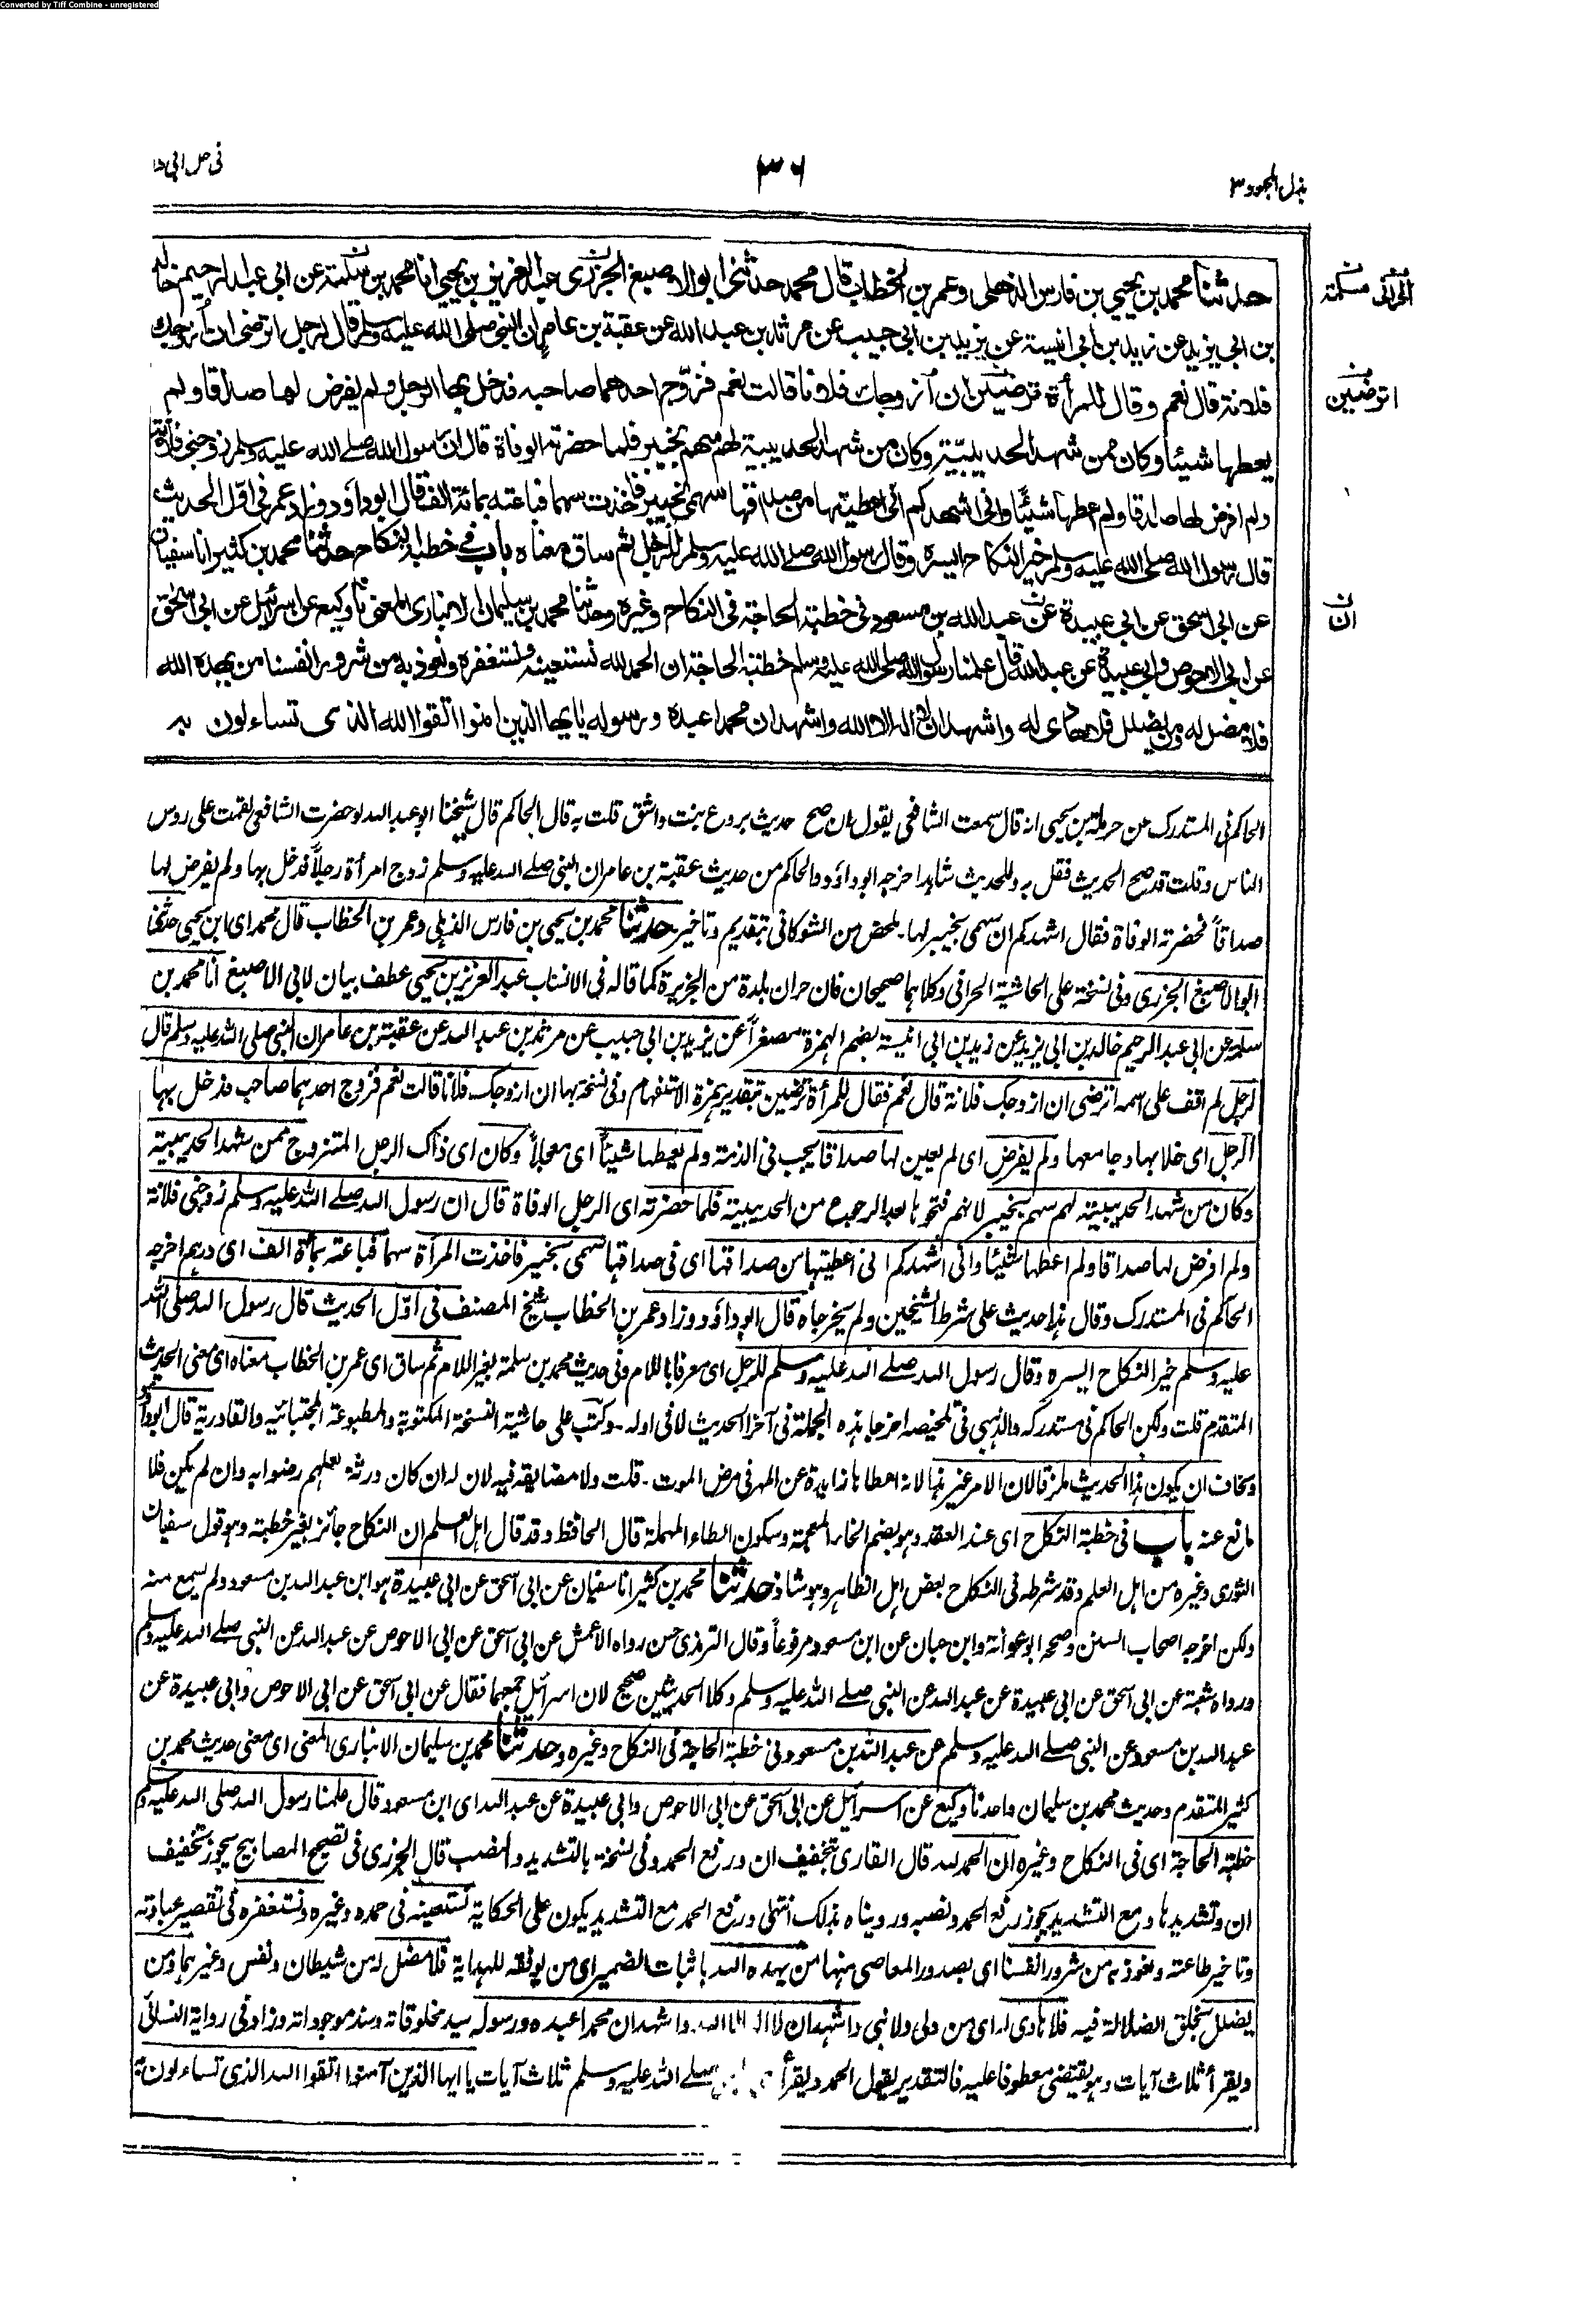 Converted by Tiff Combine - unregistered
بذل المجهود ٣
٣٦
فی حل ابی
حدثنا محمد بن يحيى بن فارس الذهلي وعمر بن الخطاب قال محمد حدثني ابو الاصبغ الجزري عبد العزيز بن يحيى انا محمد بن سلمة عن ابي عبد الرحيم خالد
الحراني مسلمة
بن ابي يزيد عن زيد بن ابي انيسة عن يزيد بن ابي حبيب عن مرثد بن عبد الله عن عقبة بن عامر ان النبي صلى الله عليه وسلم قال لرجل اترضى ان ازوجك
فلانة قال نعم وقال للمرأة ترضين ان ازوجك فلانا قالت نعم فزوج احدهما صاحبه فدخل بها الرجل ولم يفرض لها صداقا ولم
اترضين
يعطها شيئا وكان ممن شهد الحديبية وكان من شهد الحديبية لهم سهم بخيبر فلما حضرته الوفاة قال ان رسول الله صلے الله عليه وسلم زوجني فلانة
ولم افرض لها صداقا ولم اعطها شيئا واني اشهدكم اني اعطيتها من صداقها سهمي بخيبر فاخذت سهما فباعته بمائة الف قال ابو داؤد وزاد عمر في اول الحديث
قال رسول الله صلى الله عليه وسلم خير النكاح ايسره وقال رسول الله صلے الله عليه وسلم للرجل ثم ساق معناه باب في خطبة النكاح حدثنا محمد بن كثير انا سفيان
عن ابي اسحق عن ابي عبيدة عن عبد الله بن مسعود في خطبة الحاجة في النكاح وغيره وحدثنا محمد بن سليمان الانباري المعنى نا وكيع عن اسرائيل عن ابي اسحق
ان
عن ابي الاحوص وابي عبيدة عن عبد الله قال علمنا رسول الله صلى الله عليه وسلم خطبة الحاجة ان الحمد لله نستعينه ونستغفره ونعوذ به من شرور انفسنا من يهده الله
فلا مضل له ومن يضلل فلا هادي له واشهد ان لا اله الا الله واشهد ان محمدا عبده ورسوله يايها الذين امنوا اتقوا الله الذي تساءلون به
الحاكم في المستدرك عن حرملة بن يحيى انه قال سمعت الشافعي يقول ان صح حديث بروع بنت واشق قلت به قال الحاكم قال شيخنا ابو عبد الله لو حضرت الشافعي لقمت على رؤس
الناس وقلت قد صح الحديث فقل به وللحديث شاهد اخرجه ابو داؤد والحاكم من حديث عقبة بن عامر ان النبي صلے الله عليه وسلم زوج امرأة رجلاً فدخل بها ولم يفرض لها
صداقاً فحضرته الوفاة فقال اشهدكم ان سهمي بخيبر لها۔ ملخص من الشوكاني بتقديم وتاخير۔ حدثنا محمد بن يحيى بن فارس الذهلي وعمر بن الخطاب قال محمد اى ابن يحيى حدثني
ابو الاصبغ الجزري وفي نسخة على الحاشية الحراني وكلاهما صحيحان فان حران بلدة من الجزيرة كما قاله في الانساب عبد العزيز بن يحيى عطف بيان لابي الاصبغ انا محمد بن
سلمة عن ابي عبد الرحيم خالد بن ابي يزيد عن زيد بن ابي انيسة بضم الهمزة مصغراً عن يزيد بن ابي حبيب عن مرثد بن عبد الله عن عقبة بن عامر ان النبي صلى الله عليه وسلم قال
لرجل لم اقف على اسمه اترضى ان ازوجك فلانة قال نعم فقال للمرأة ترضين بتقدير همزة الاستفهام وفي نسخة بها ان ازوجك فلانا قالت نعم فزوج احدهما صاحبه فدخل بها
الرجل اى خلا بها وجامعها ولم يفرض اى لم يعين لها صداقا يجب في الذمة ولم يعطها شيئاً اى معجلاً وكان اى ذاك الرجل المتزوج ممن شهد الحديبية
وكان من شهد الحديبية لهم سهم بخيبر لانهم فتحوها بعد الرجوع من الحديبية فلما حضرته اى الرجل الوفاة قال ان رسول الله صلے الله عليه وسلم زوجني فلانة
ولم افرض لها صداقا ولم اعطها شيئا واني اشهدكم اني اعطيتها من صداقها اى في صداقها سهمي بخيبر فاخذت المرأة سهما فباعته بمائة الف اى درهم اخرجه
الحاكم في المستدرك وقال هذا حديث على شرط الشيخين ولم يخرجاه قال ابو داؤد وزاد عمر بن الخطاب شيخ المصنف في اول الحديث قال رسول الله صلى الله
عليه وسلم خير النكاح ايسره وقال رسول الله صلے الله عليه وسلم للرجل اى معرفا باللام وفي حديث محمد بن سلمة بغير اللام ثم ساق اى عمر بن الخطاب معناه اى معنى الحديث
المتقدم قلت ولكن الحاكم في مستدركه والذهبي في تلخيصه اخرجا هذه الجملة في آخر الحديث لا في اوله۔ وكتب على حاشية النسخة المكتوبة والمطبوعة المجتبائية والقادرية قال ابو داؤد
ويخاف ان يكون هذا الحديث ملزقا لان الامر غير هذا لانه اعطاها زايدة عن المهر في مرض الموت۔ قلت ولا مضايقة فيه لان له ان كان ورثة لعلهم رضوا به وان لم يكن فلا
مانع عنه باب في خطبة النكاح اى عند العقد وهو بضم الخاء المعجمة وسكون الطاء المهملة قال الحافظ وقد قال اهل العلم ان النكاح جائز بغير خطبة وهو قول سفيان
الثوري وغيره من اهل العلم وقد شرطه في النكاح بعض اهل الظاهر وهو شاذ حدثنا محمد بن كثير انا سفيان عن ابي اسحق عن ابي عبيدة هو ابن عبد الله بن مسعود ولم يسمع منه
ولكن اخرجه اصحاب السنن وصححه ابو عوانة وابن حبان عن ابن مسعود مرفوعاً وقال الترمذي حسن رواه الاعمش عن ابي اسحق عن ابي الاحوص عن عبد الله عن النبي صلے الله عليه وسلم
ورواه شعبة عن ابي اسحق عن ابي عبيدة عن عبد الله عن النبي صلے الله عليه وسلم وكلا الحديثين صحيح لان اسرائيل جمعهما فقال عن ابي اسحق عن ابي الاحوص وابي عبيدة عن
عبد الله بن مسعود عن النبي صلے الله عليه وسلم عن عبد الله بن مسعود في خطبة الحاجة في النكاح وغيره وحدثنا محمد بن سليمان الانباري المعنى اى معنى حديث محمد بن
كثير المتقدم وحديث محمد بن سليمان واحد نا وكيع عن اسرائيل عن ابي اسحق عن ابي الاحوص وابي عبيدة عن عبد الله اى ابن مسعود قال علمنا رسول الله صلى الله عليه وسلم
خطبة الحاجة اى في النكاح وغيره ان الحمد لله قال القاري بتخفيف ان ورفع الحمد وفي نسخة بالتشديد والنصب قال الجزري في تصحيح المصابيح يجوز تخفيف
ان وتشديدها ومع التشديد يجوز رفع الحمد ونصبه ورويناه بذلك انتهى ورفع الحمد مع التشديد يكون على الحكاية نستعينه في حمده وغيره ونستغفره في تقصير عبادته
وتاخير طاعته ونعوذ به من شرور انفسنا اى بصدور المعاصي منها من يهده الله باثبات الضمير اى من يوفقه للهداية فلا مضل له من شيطان ونفس وغيرهما ومن
يضلل بخلق الضلالة فيه فلا هادي له اى من ولى ولا نبي واشهد ان لا اله الا الله واشهد ان محمدا عبده ورسوله سيد مخلوقاته وسند موجوداته وزاد في رواية النسائي
ويقرأ ثلاث آيات وهو يقتضي معطوفا عليه فالتقدير يقول الحمد ويقرأ صلے الله عليه وسلم ثلاث آيات يا ايها الذين آمنوا اتقوا الله الذي تساءلون به